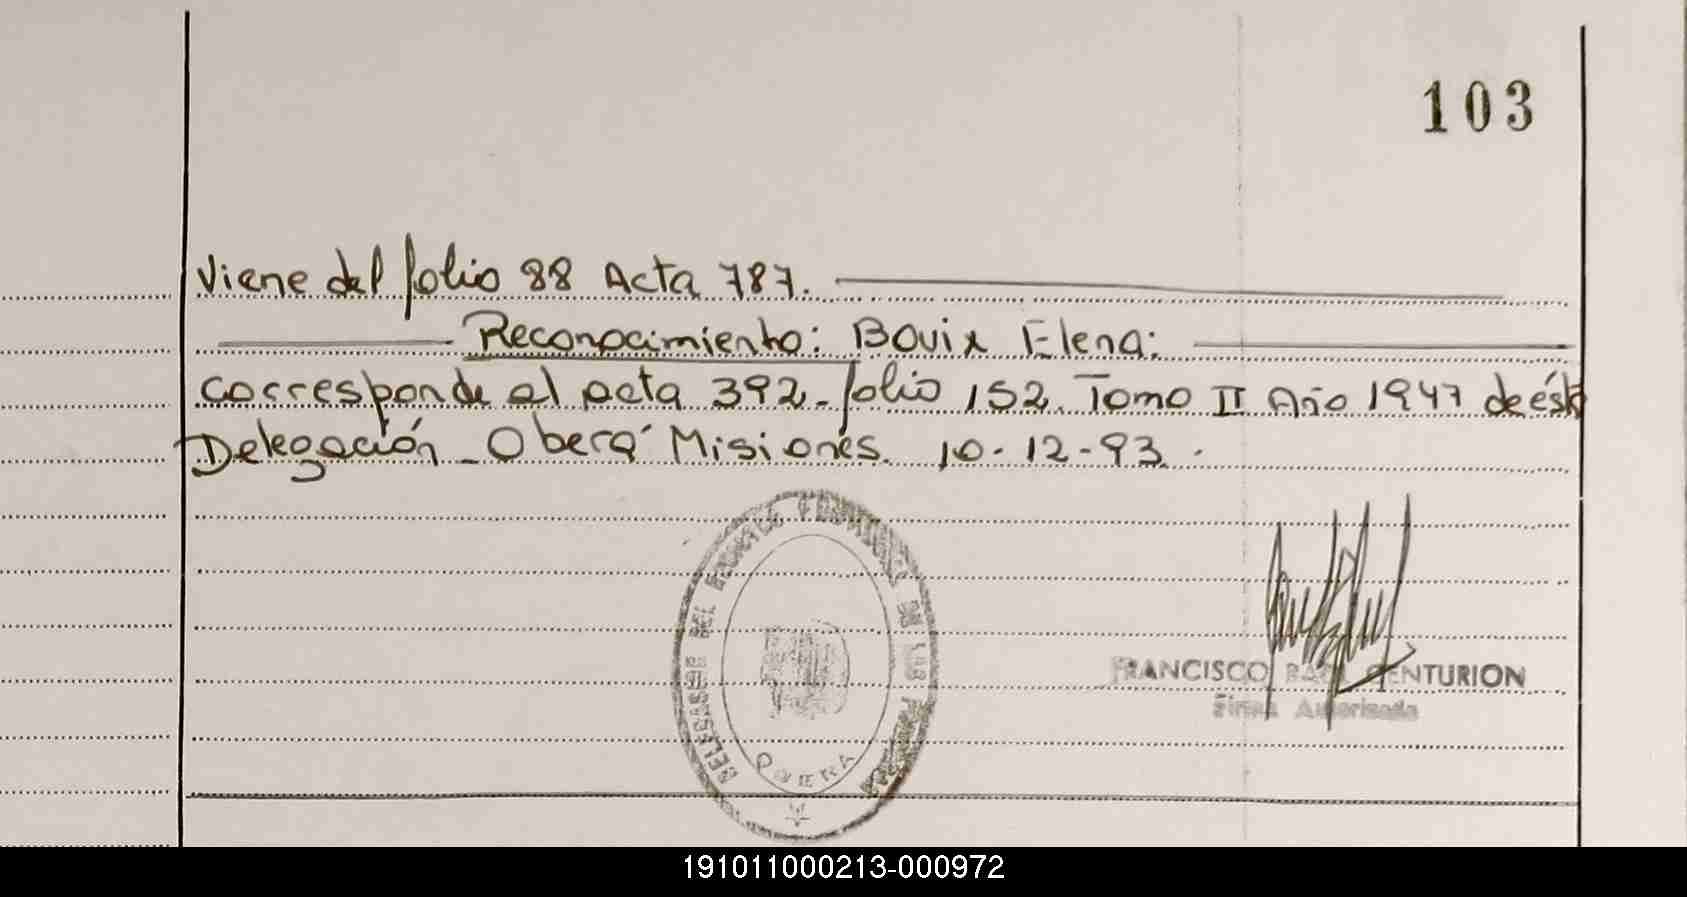 103
Viene del folio 88 Acta 787.
Reconocimiento: Bouix Elena:
corresponde al acta 392 - folio 152. Tomo II Año 1947 de ésta
Delegación - Oberá Misiones. 10-12-93.
DELEGACION DEL REGISTRO PROVINCIAL DE LAS PERSONAS
OBERA
FRANCISCO CENTURION
Firma Autorizada
191011000213-000972